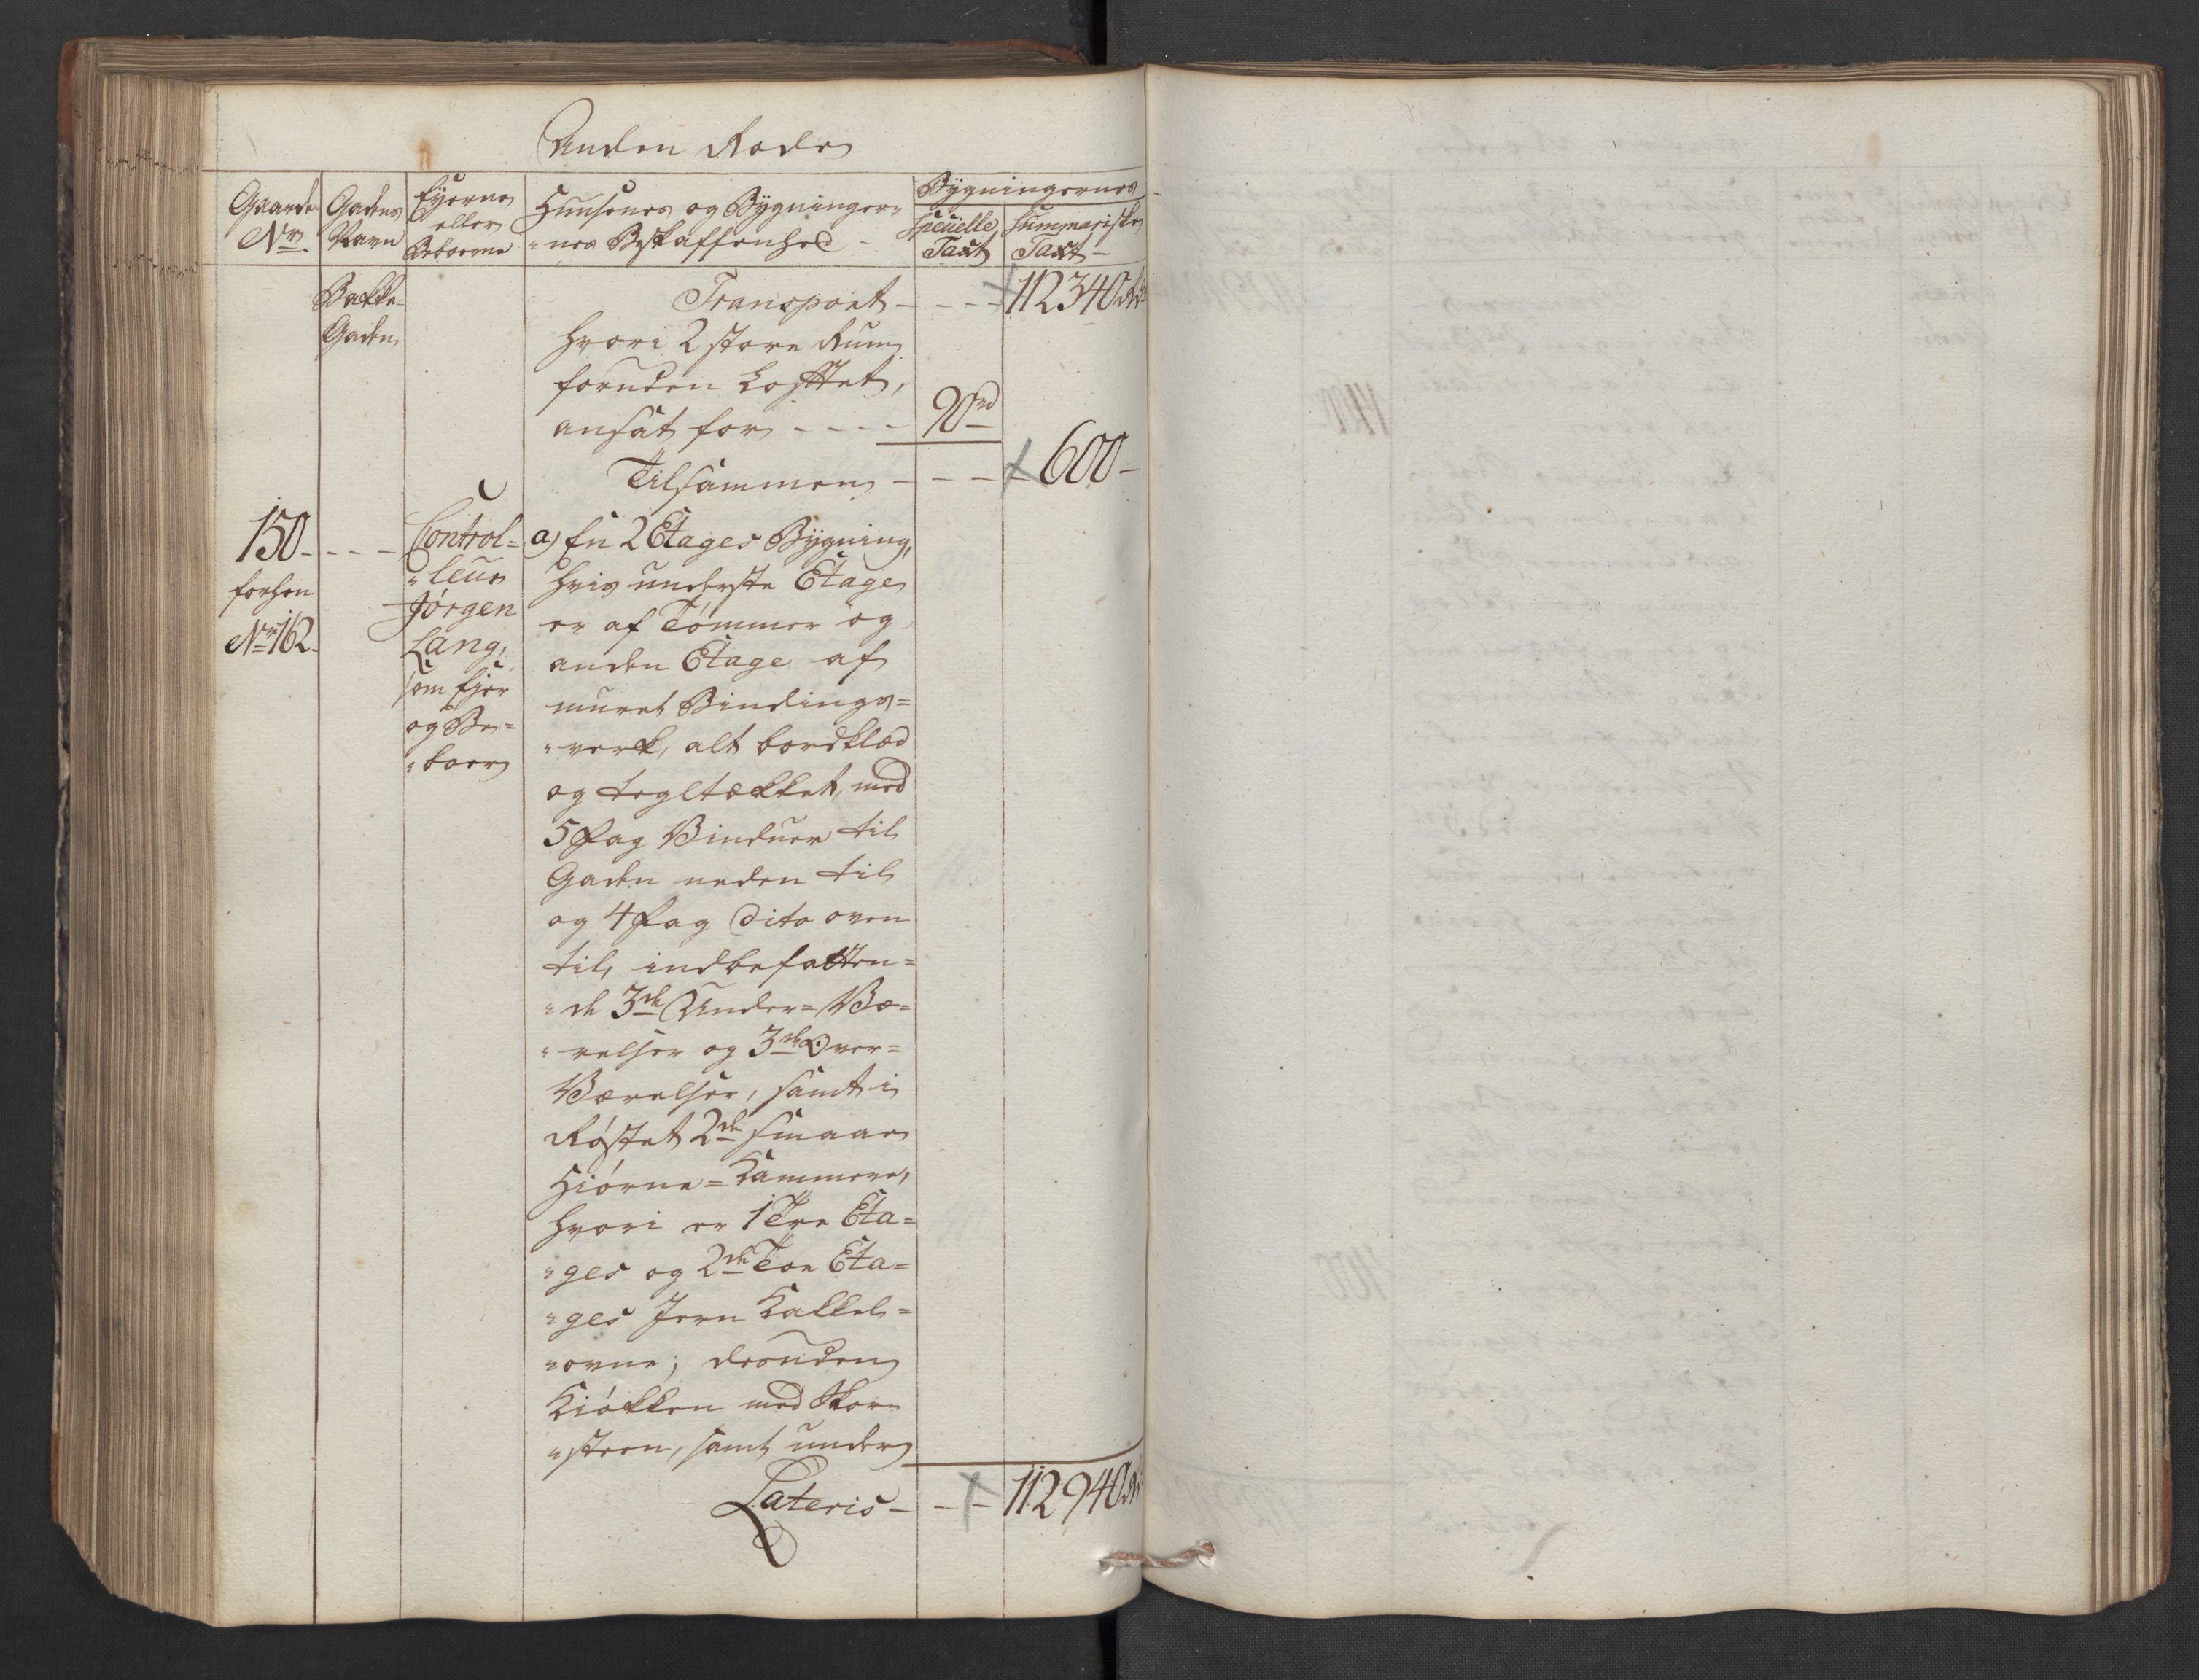 Anden Rode
Gaarde Nr.
Gadens Navn
Ejerne eller Beboerne
Huusenes og Bygninger=
"nes Beskaffenhed -
Bygningernes
Specielle Taxt
Summariske Taxt -
Bakke=
Gaden
Transport - - - - 112340 rd
hvori 2 store Rum
foruden Lofttet,
ansat for - - - - 90 rd
Tilsammen - - - - 600 -
150 - - - -
forhen
No 162.
Control=
"leur
Jørgen
Lang,
som Ejer
og Be=
"boer
a) En 2 Etages Bygning,
hvis underste Etage
er af Tømmer og
anden Etage af
muret Bindings=
"verk, alt bordklæd
og tegltækket, med
5 Fag Vinduer til
Gaden neden til
og 4 Fag Dito oven
til, indbefatten=
"de 3de Under=Væ=
"relser og 3de Over=
Værelser, samt i
Røstet 2de smaae
Hiørne=Kammere,
hvori er 1 Tre Eta=
"ges og 2de Toe Eta=
"ges Jern Kakkel=
"ovne; desuden
Kiøkken med Skor=
"steen, samt under
Lateris - - - 112940 rd